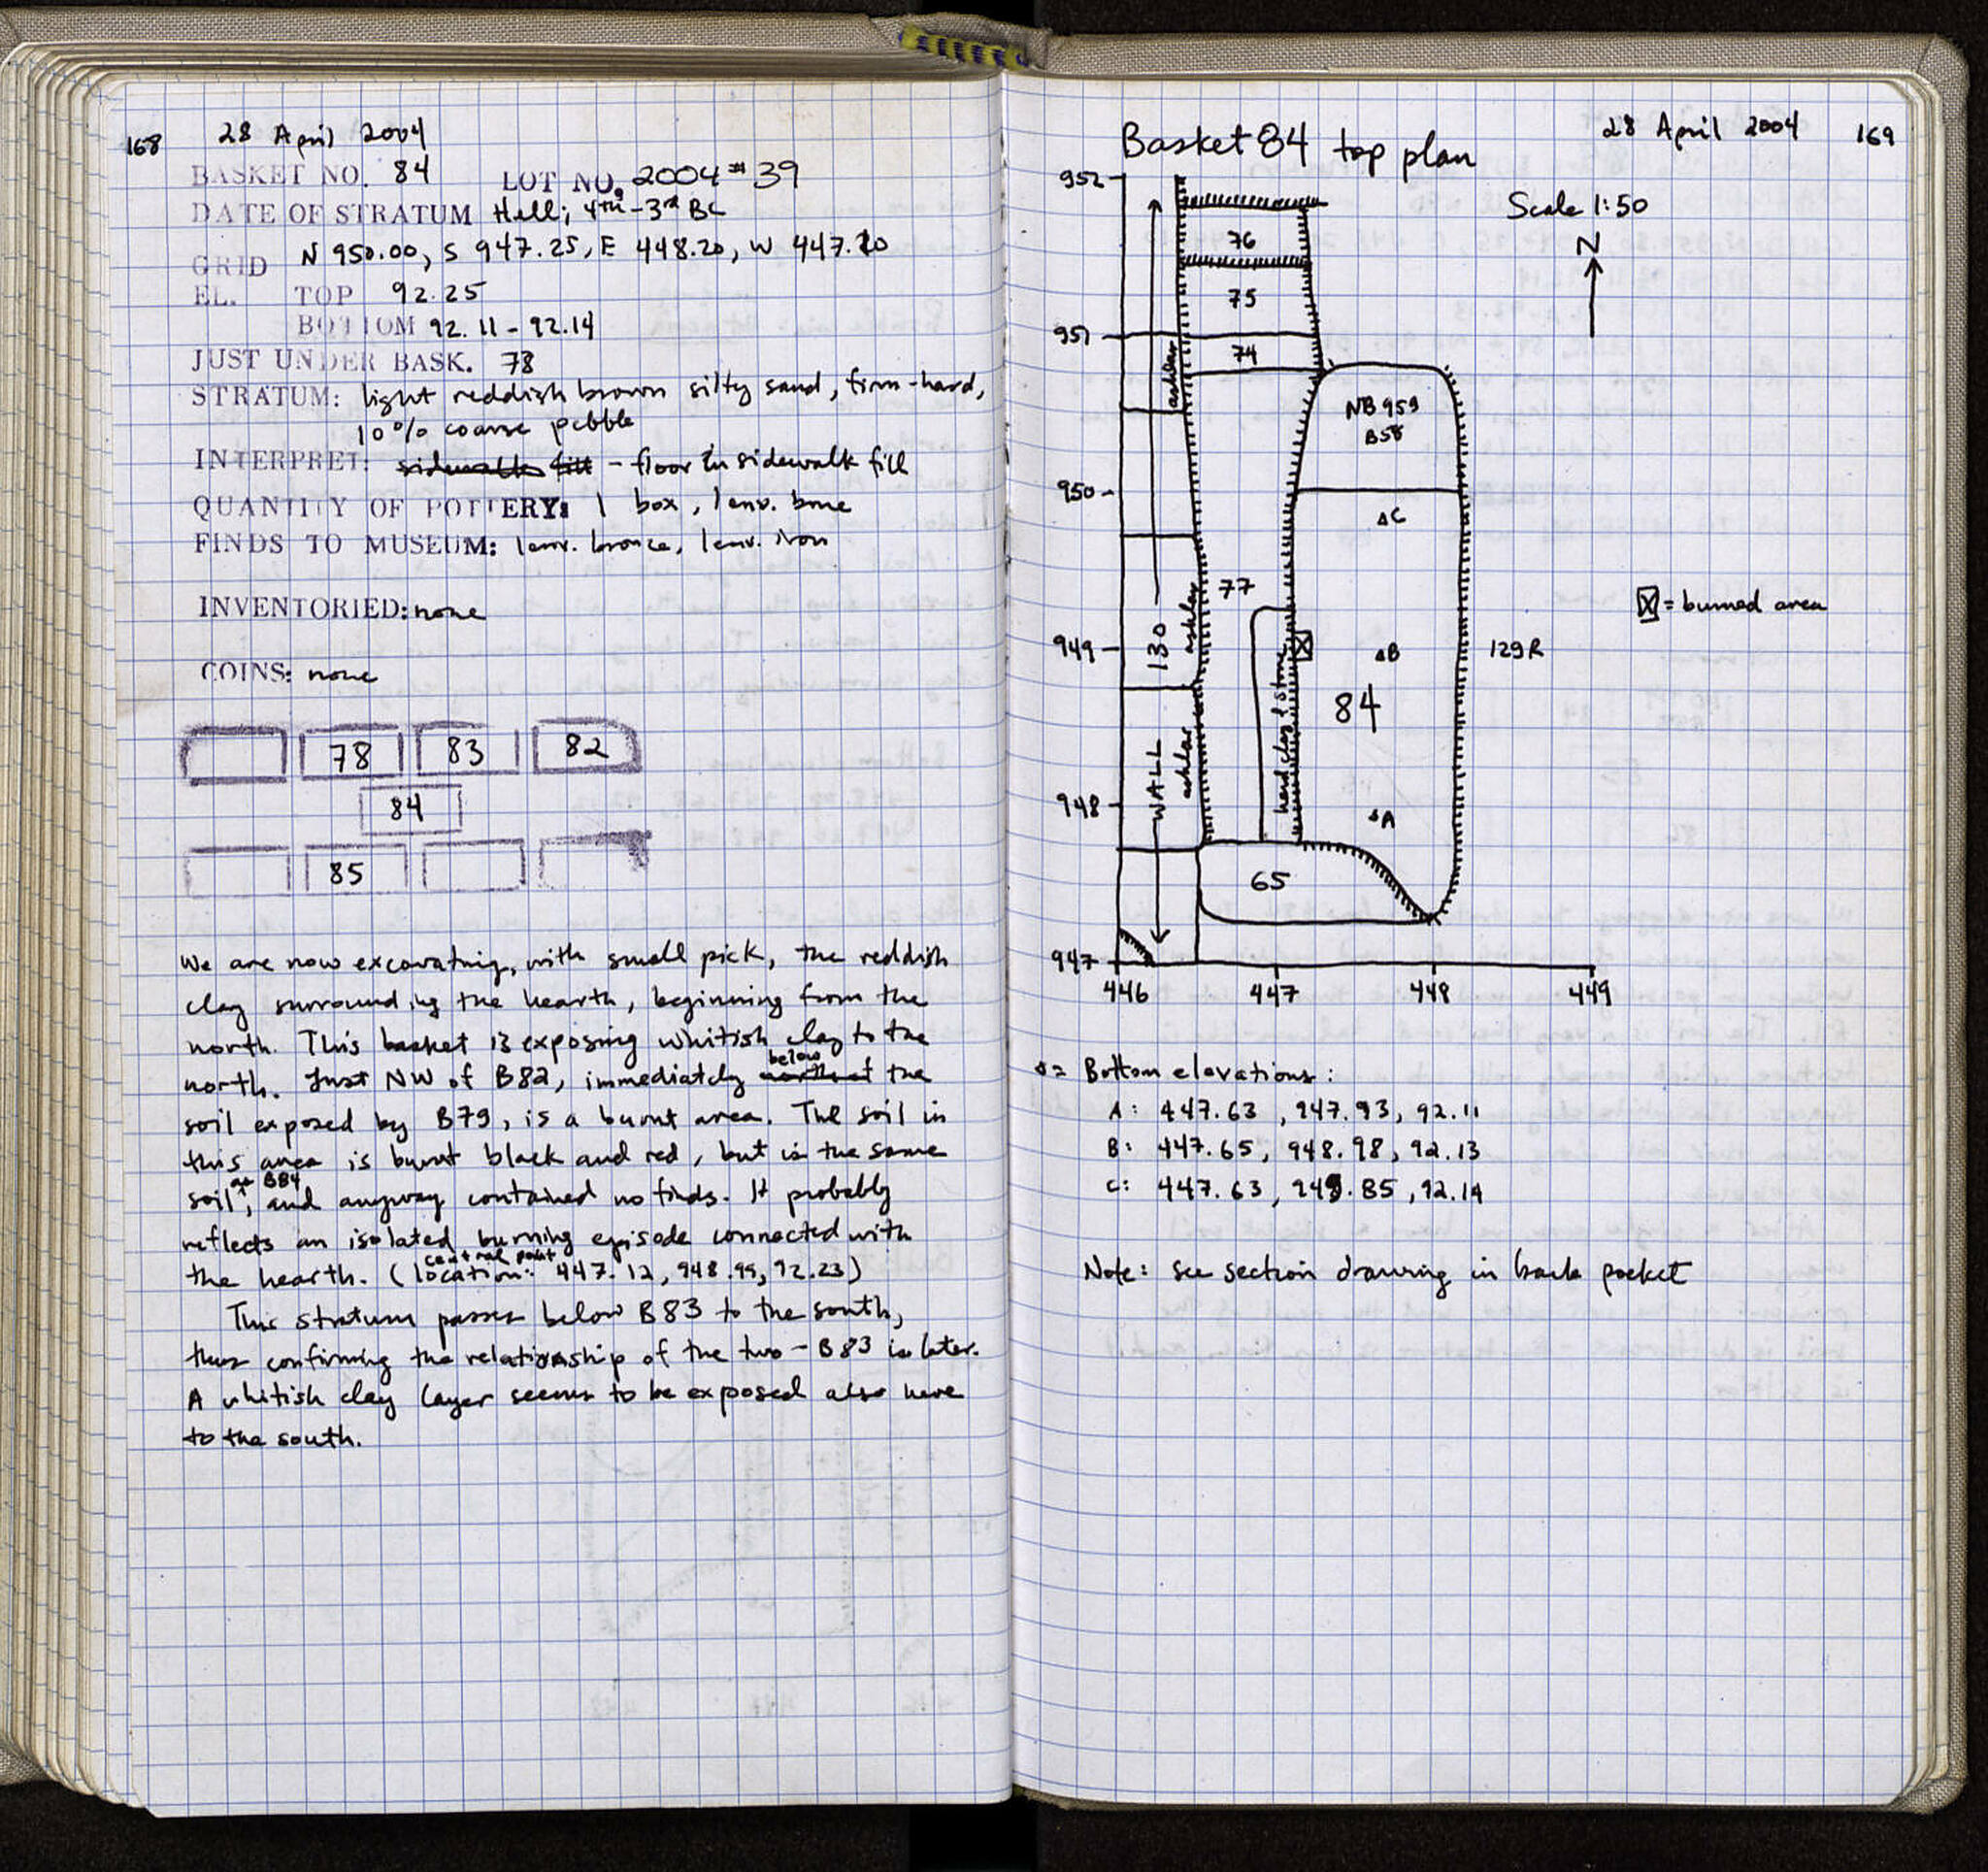 168
28 April 2004
BASKET NO. 84 LOT NO. 2004-39
DATE OF STRATUM Hell; 4th-3rd BC
GRID N 950.00, S 947.25, E 448.20, W 447.20
EL. TOP 92.25
BOTTOM 92.11-92.14
JUST UNDER BASK. 78
STRATUM: light reddish brown silty sand, firm-hard,
10% coarse pebble
INTERPRET: sidewalk fill - floor in sidewalk fill
QUANTITY OF POTTERY: 1 box, 1 env. bone
FINDS TO MUSEUM: 1 env. bronze, 1 env. iron
INVENTORIED: none
COINS: none
78 83 82
84
85
We are now excavating, with small pick, the reddish
clay surrounding the hearth, beginning from the
north. This basket is exposing whitish clay to the
north. Just NW of B82, immediately below the
soil exposed by B79, is a burnt area. The soil in
this area is burnt black and red, but is the same
soil as B84, and anyway contained no finds. It probably
reflects an isolated burning episode connected with
the hearth. (central point location: 447.12, 948.99, 92.23)
This stratum passes below B83 to the south,
thus confirming the relationship of the two - B83 is later.
A whitish clay layer seems to be exposed also here
to the south.
28 April 2004 169
Basket 84 top plan
Scale 1:50
N
952
951
950
949
948
947
446 447 448 449
76
75
74
NB 959
B58
C
77
B
84
A
65
129R
WALL 130
ashlar
ashlar
ashlar
hard clay & stone
X = burned area
Δ = Bottom elevations:
A: 447.63, 947.93, 92.11
B: 447.65, 948.98, 92.13
C: 447.63, 949.85, 92.14
Note: see section drawing in back pocket